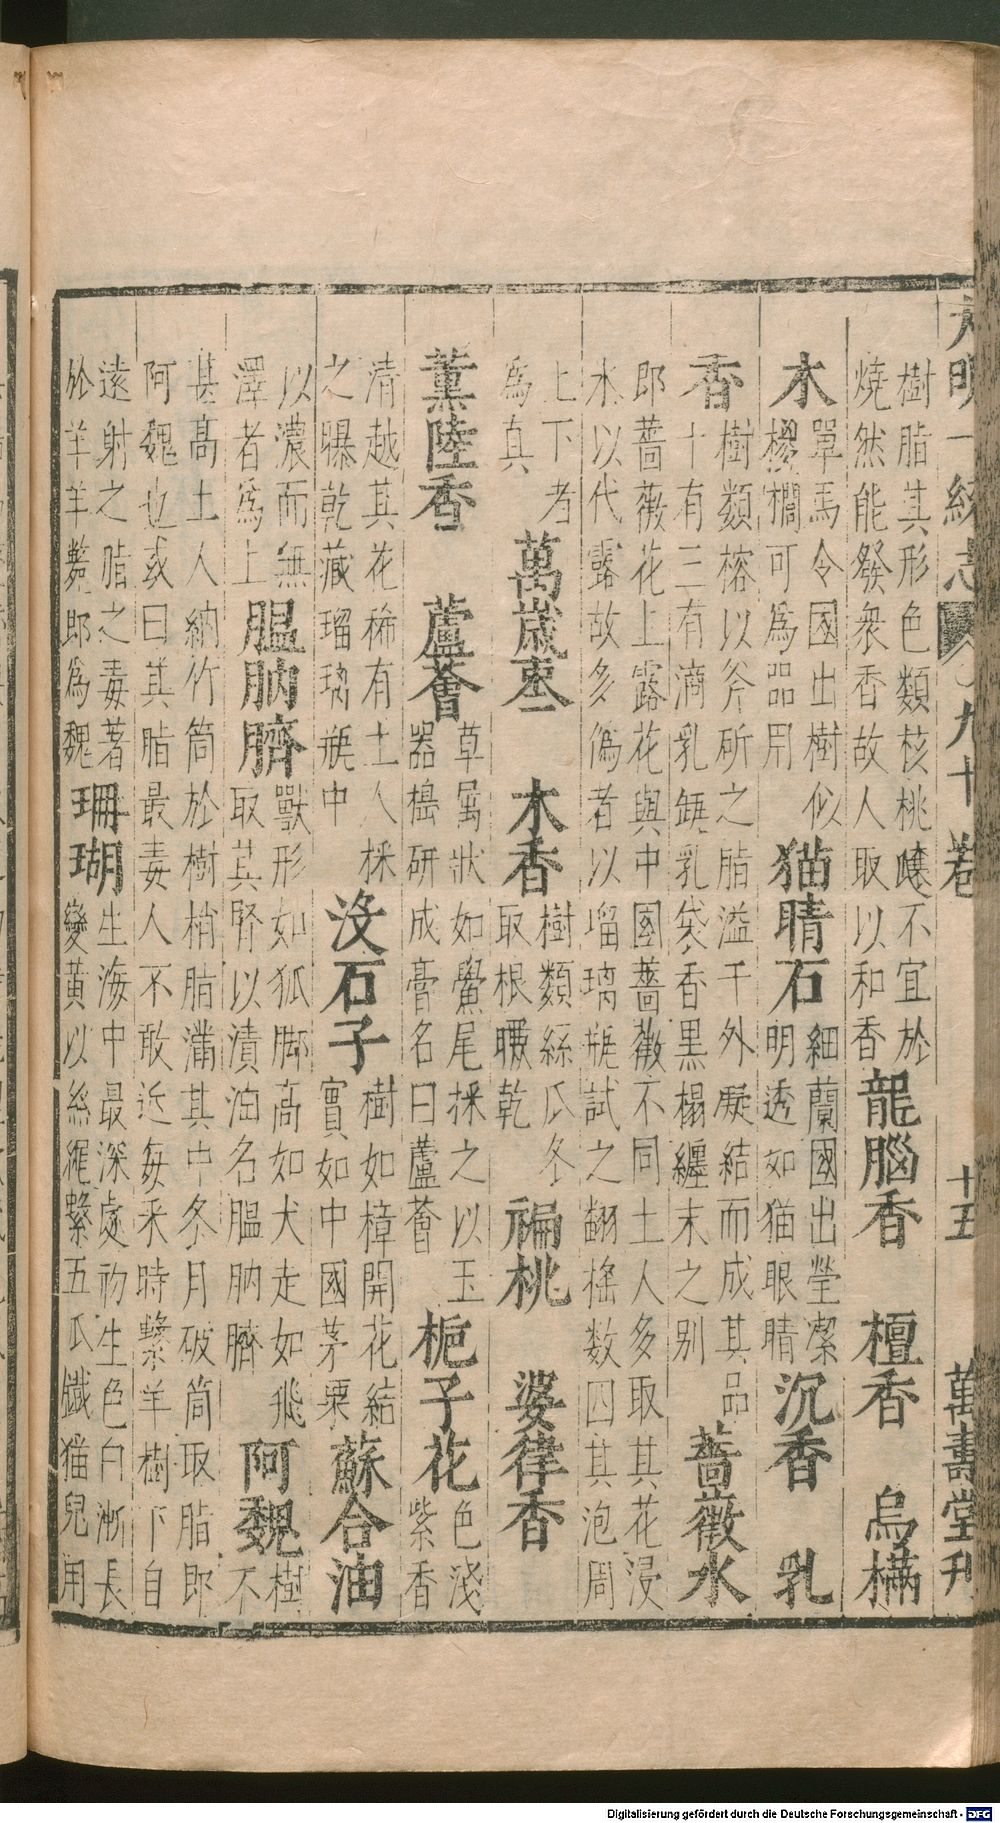 大明一統志 九十卷 十五 萬壽堂刊
樹脂其形色類核桃瓤不宜於
燒然能發衆香故人取以和香
龍腦香 檀香 烏樠
木
單馬令國出樹似
櫚可為器用
猫睛石
細蘭國出瑩潔
明透如猫眼睛
沉香 乳
香
樹類榕以斧斫之脂溢于外凝結而成其品
十有三有滴乳缾乳袋香黑榻纏末之别
薔薇水
即薔薇花上露花與中國薔薇不同土人多取其花浸
水以代露故多偽者以瑠璃瓶試之翻揺数四其泡周
上下者
為真
萬歲棗 木香
樹類絲瓜冬
取根曬乾
褊桃 婆律香
薰陸香 蘆薈
草属狀如鱟尾採之以玉
器搗研成膏名曰蘆薈
梔子花
色淺
紫香
清越其花稀有土人採
之曝乾藏瑠璃瓶中
沒石子
樹如樟開花結
實如中國茅栗
蘇合油
以濃而無
澤者為上
膃肭臍
獸形如狐脚高如犬走如飛
取其腎以漬油名膃肭臍
阿魏
樹
不
甚髙土人納竹筒於樹梢脂滿其中冬月破筒取脂即
阿魏也或曰其脂最毒人不敢近每采時繫羊樹下自
遠射之脂之毒著
於羊羊斃即為魏
珊瑚
生海中最深處初生色白漸長
變黃以絲繩繫五爪鐵猫兒用
Digitalisierung gefördert durch die Deutsche Forschungsgemeinschaft - DFG